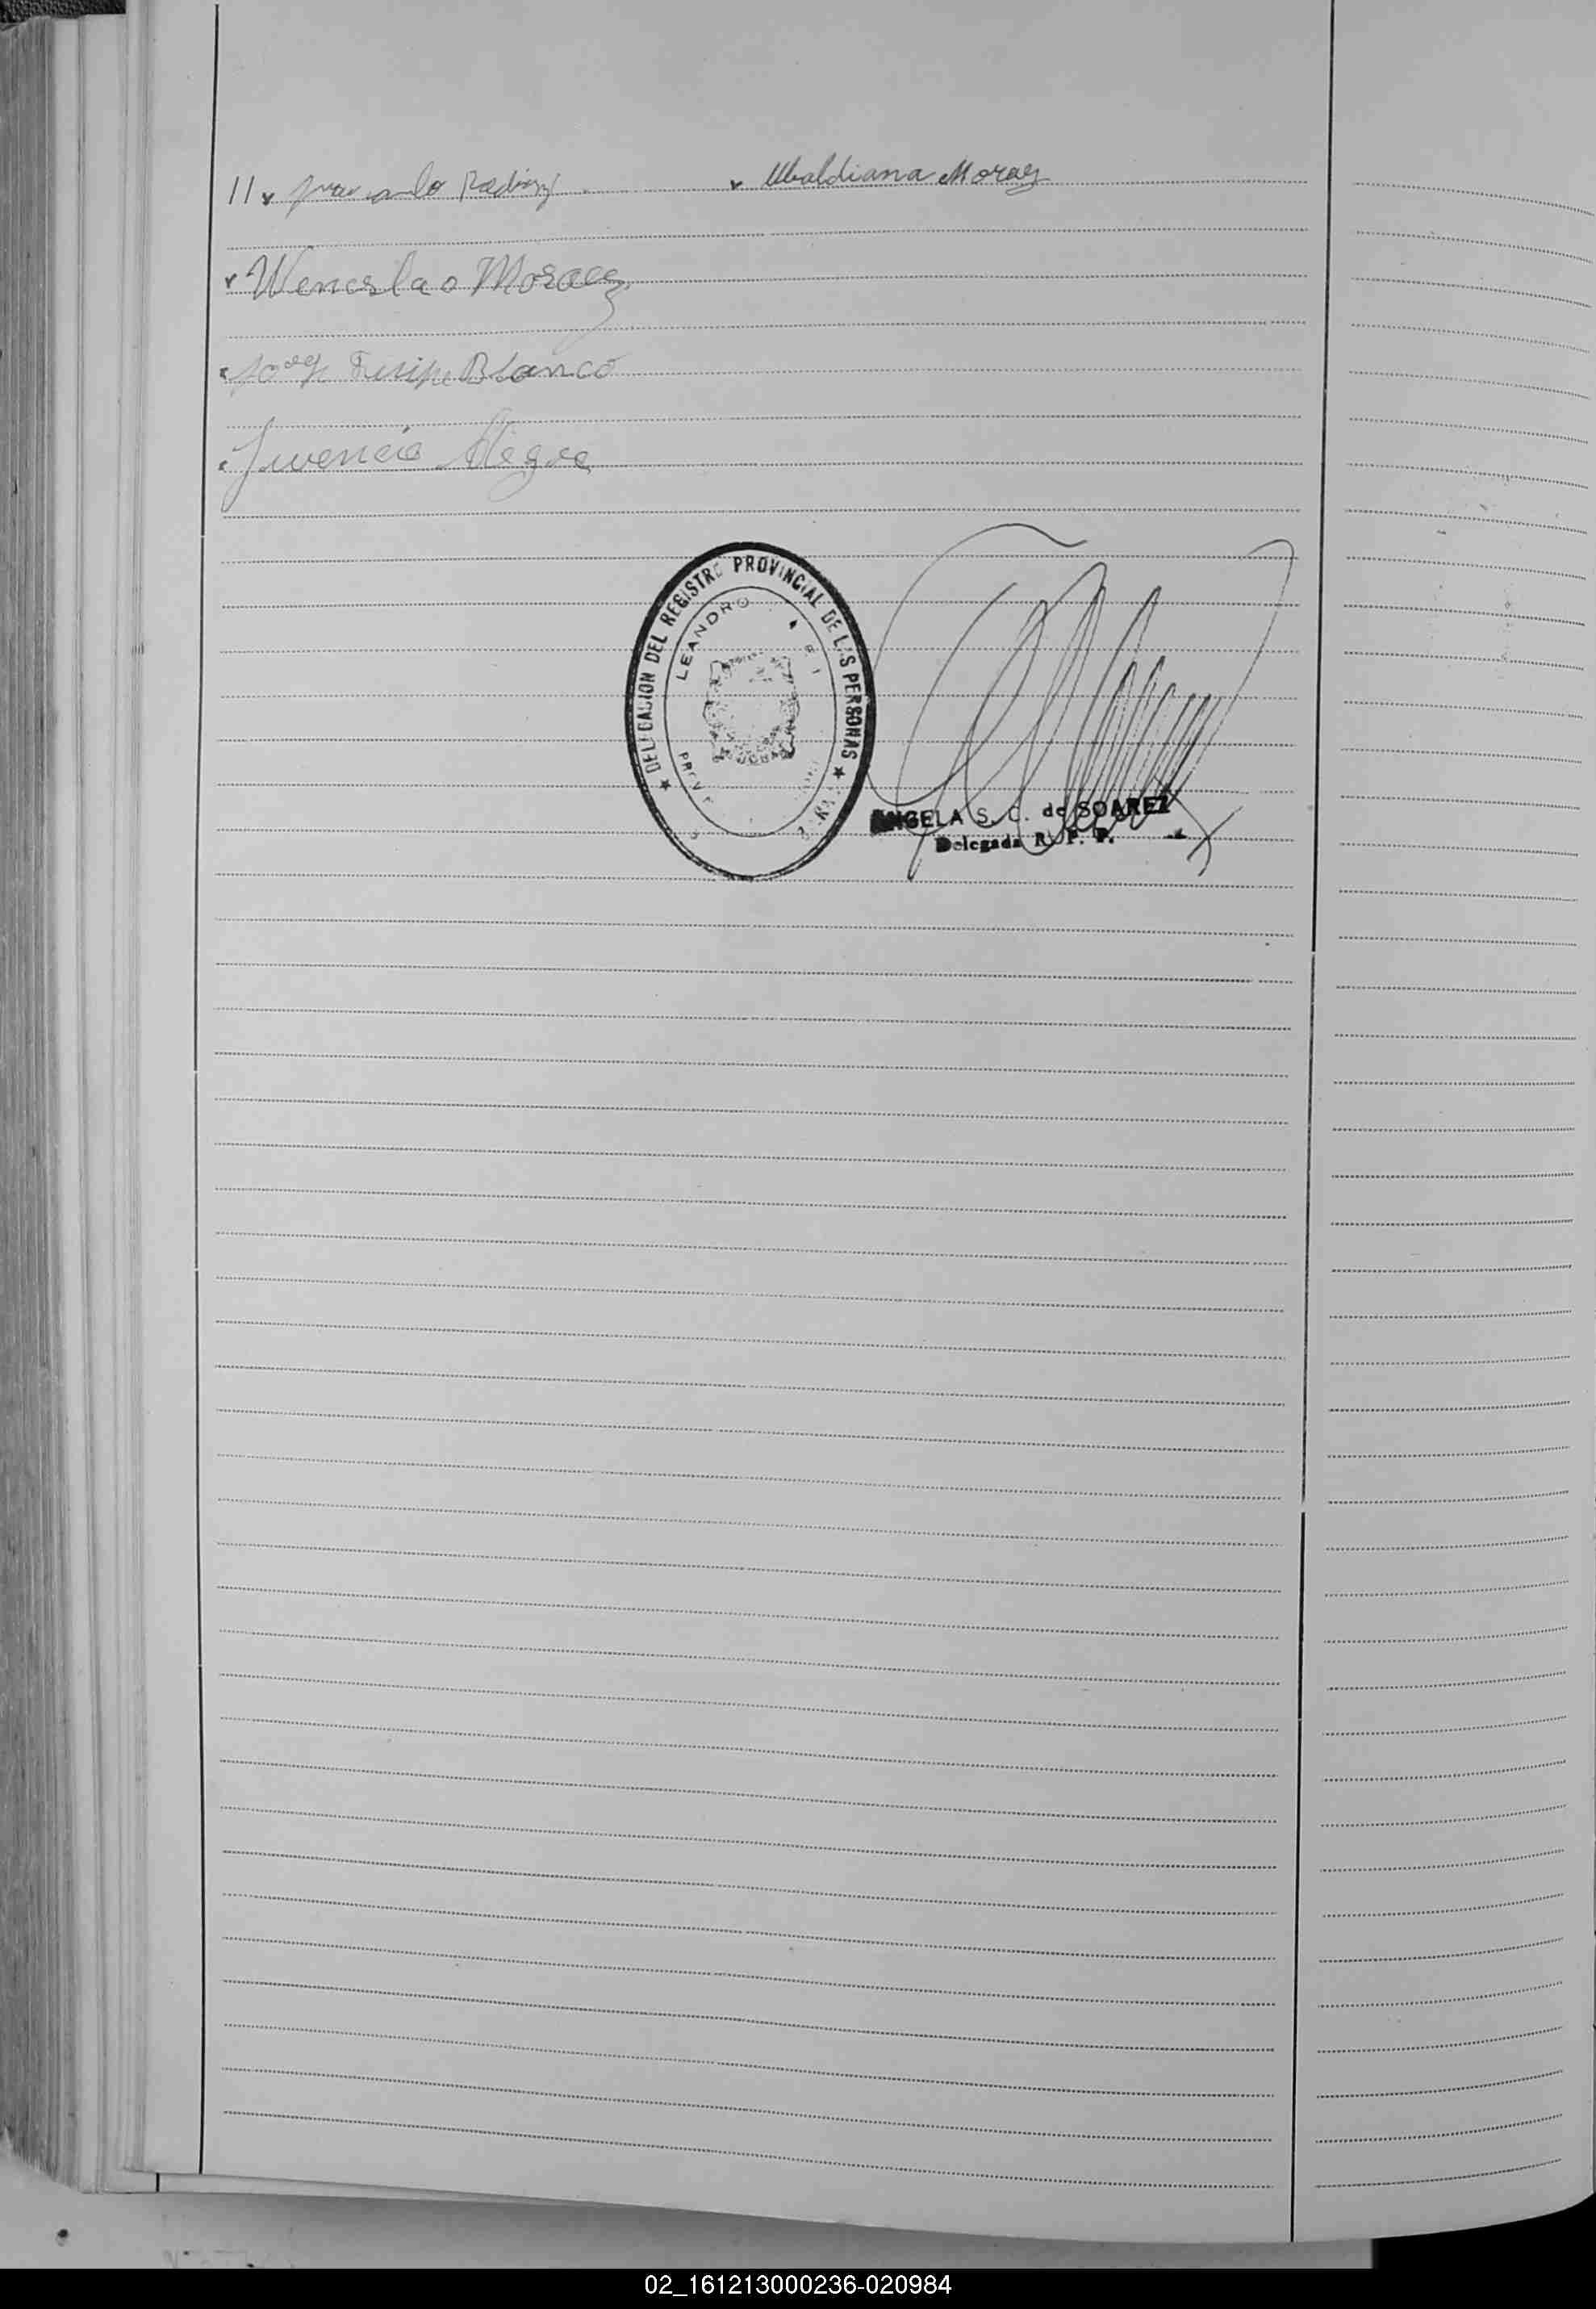 11
Ubaldiana Moraez
Wenceslao Moraez
Felipe Blanco
Juvencio Alegre
DELEGACION DEL REGISTRO PROVINCIAL DE LAS PERSONAS
LEANDRO
ANGELA S. C. de SOAREZ
Delegada R. P. P.
02_161213000236-020984